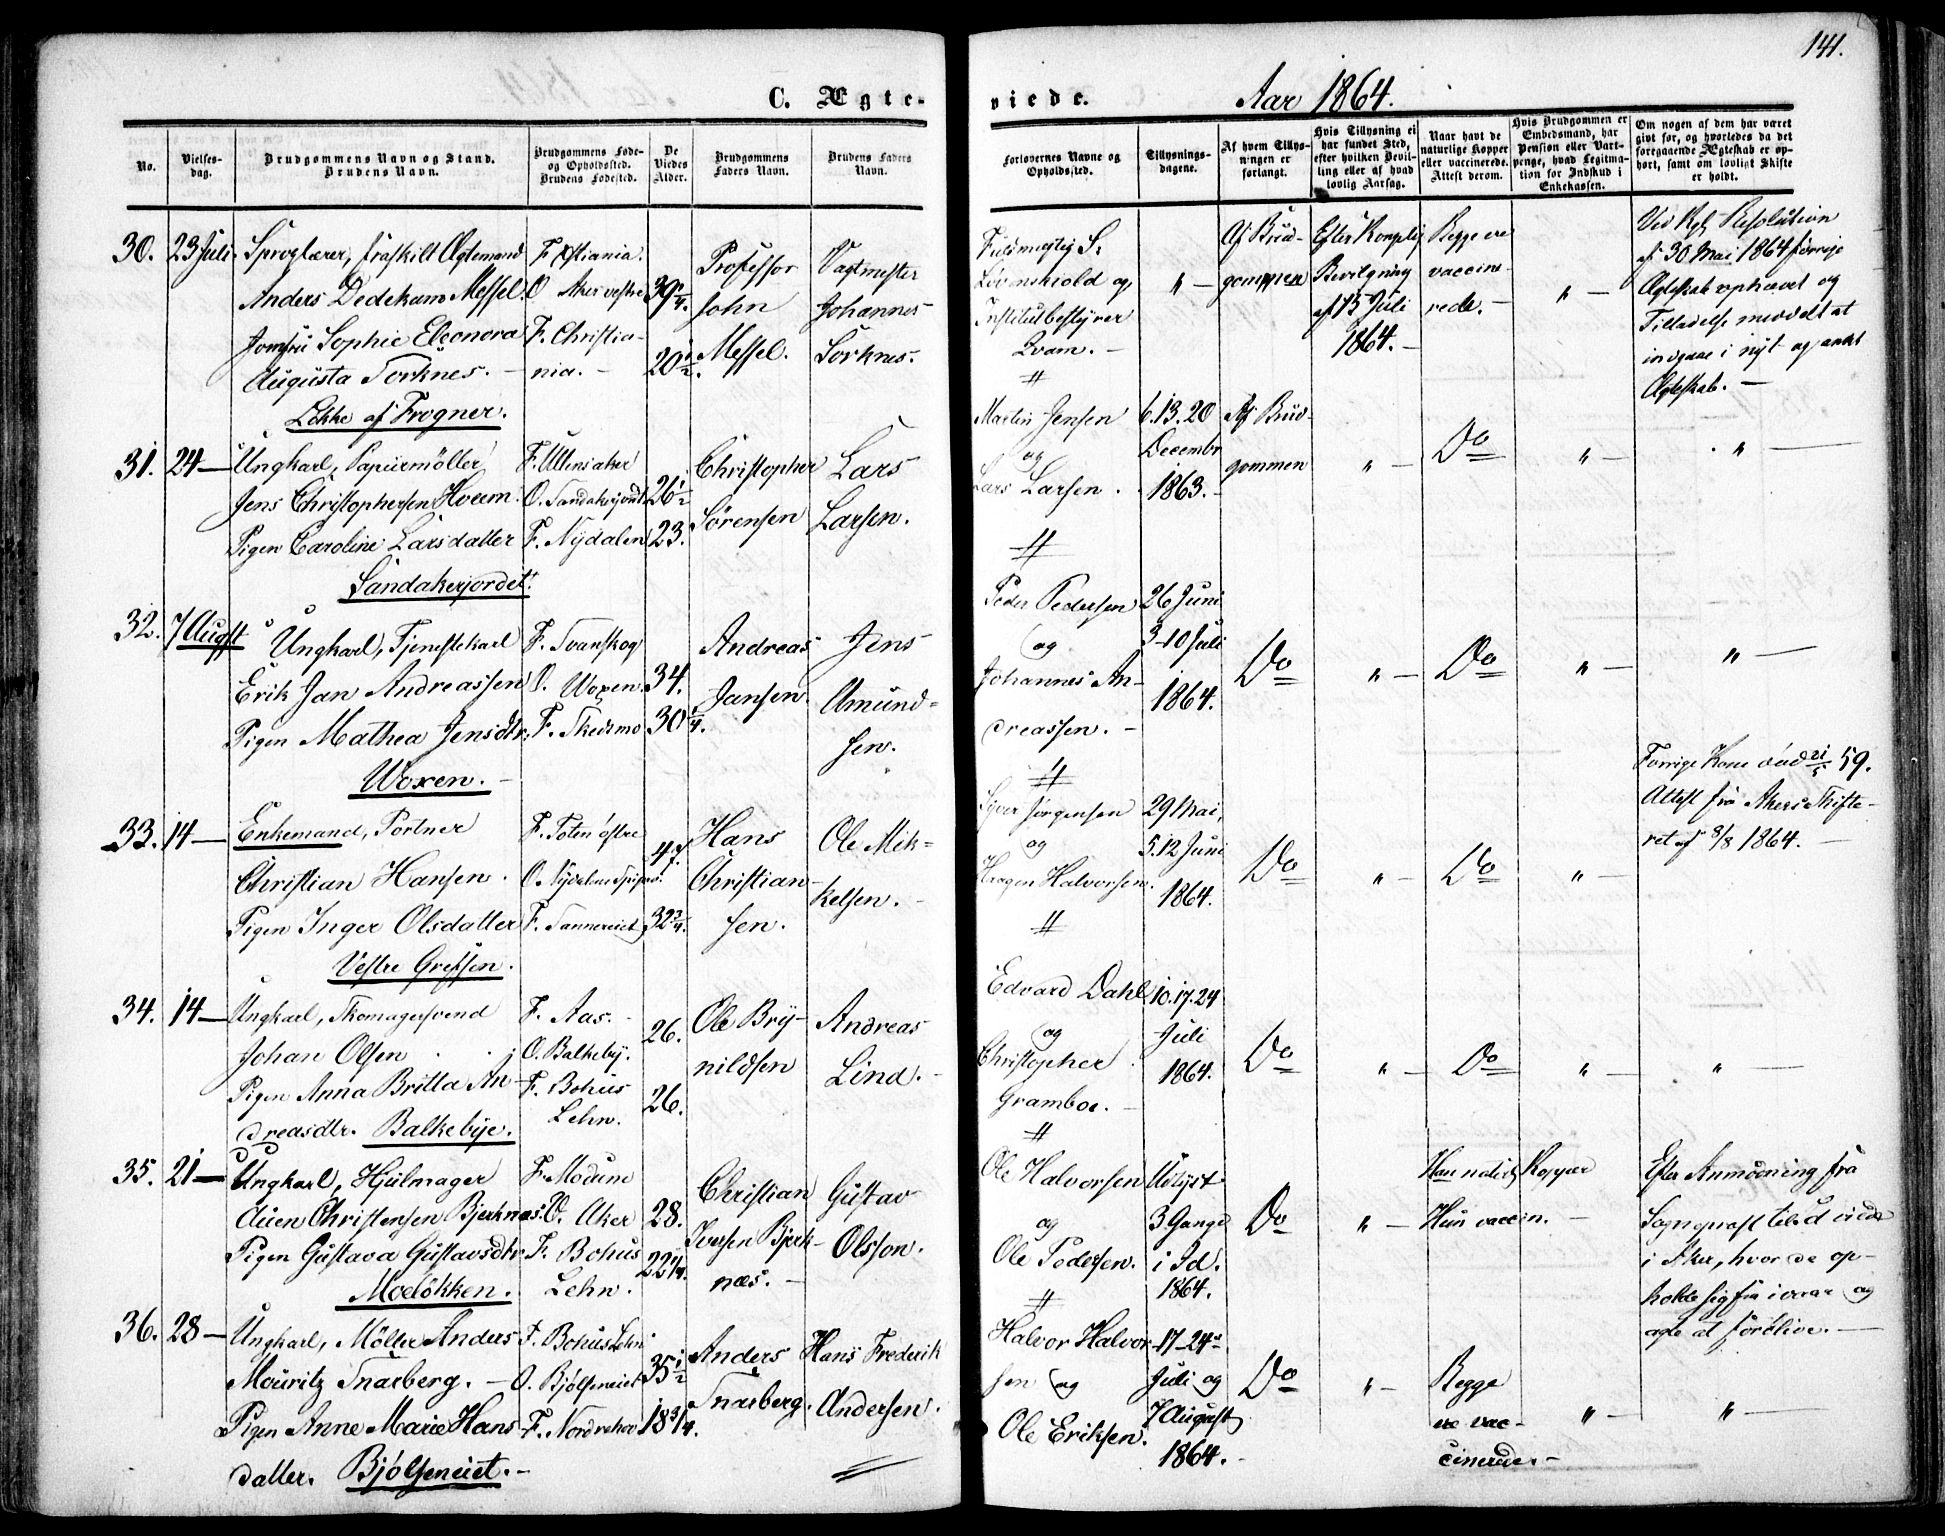 141.
C. Ægte-
viede.
Aar 1864.
No.
Vielses-
dag.
Brudgommens Navn og Stand.
Brudens Navn.
Brudgommens Føde-
og Opholdssted.
Brudens Fødested.
De
Viedes
Alder.
Brudgommens
Faders Navn.
Brudens Faders
Navn.
Forlovernes Navne og
Opholdssted.
Tillysnings-
dagene.
Af hvem Tillys-
ningen er
forlangt.
Hvis Tillysning ei
har fundet Sted,
efter hvilken Bevil-
ling eller af hvad
lovlig Aarsag.
Naar havt de
naturlige Kopper
eller vaccinerede.
Attest derom.
Hvis Brudgommen er
Embedsmand, har
Pension eller Vart-
penge, hvad Legitima-
tion for Indskud i
Enkekassen.
Om nogen af dem har været
givt før, og hvorledes da det
foregaaende Ægteskab er op-
hørt, samt om lovligt Skifte
er holdt.
30. 23 Juli.
Sproglærer, fraskilt Ægtemand
Anders Dedekam Messel.
Jomfru Sophie Eleonora
Augusta Torknes. -
Løkke af Frogner.
F. Xstiania.
O. Aker vestre
F. Christia-
nia. -
39 1/4.
20 1/2.
Professor
John
Messel.
Vagtmester
Johannes
Torknes.
Fuldmegtig S.
Løvenskiold og
Institutbestyrer
Qvam. -
" -
Af Brud-
gommen
Efter Kongelig
Bevilgning
af 15 Juli
1864. -
Begge ere
vaccine-
rede. -
" -
Ved Kgl Resolution
af 30 Mai 1864 forrige
Ægteskab ophævet og
Tilladelse meddelt at
indgaae i nyt og andet
Ægteskab. -
31. 24 -
Ungkarl, Papiirmøller
Jens Christophersen Hoem.
Pigen Caroline Larsdatter
Sandakerjordet.
F. Ullensaker
O. Sandakerjordet
F. Nydalen
26 1/2
23.
Christopher
Sørensen
Lars
Larsen.
Martin Jensen
og
Lars Larsen.
6. 13. 20
Decembr
1863. -
Af Brud-
gommen
" -
Do
" -
" -
32. 7 August
Ungkarl, Tjenestekarl
Erik Jan Andreassen
Pigen Mathea Jensdtr.
Woxen. -
F. Svanskog
O. Woxen.
F. Skedsmo
34.
30 1/4.
Andreas
Jansen.
Jens
Amund-
sen.
Peder Pedersen
og
Johannes An-
dreassen. -
26 Juni
3-10 Juli
1864.
Do
" -
Do
" -
" -
33. 14 -
Enkemand, Portner
Christian Hansen.
Pigen Inger Olsdatter
Vestre Grefsen.
F. Toten østre
O. Nydalens Spinneri.
F. Sannereiet
47.
32 3/4.
Hans
Christian-
sen.
Ole Mik-
kelsen. -
Syver Jørgensen
og
Haagen Halvorsen.
29 Mai,
5. 12 Juni
1864.
Do
" -
Do
" -
Forrige Kone død 21/5 59.
Attest fra Akers Skifte-
ret af 8/8 1864. -
34. 14 -
Ungkarl, Skomagersvend
Johan Olsen
Pigen Anna Britta An-
dreasdtr. Balkebye.
F. Aas. -
O. Balkeby.
F. Bohus
Lehn.
26.
26.
Ole Bryn-
nildsen
Andreas
Lind. -
Edvard Dahl
og
Christopher
Gramboe. -
10. 17. 24
Juli
1864.
Do
" -
Do
" -
" -
35. 21 -
Ungkarl, Hjulmager
Auen Christensen Bjerknæs.
Pigen Gustava Gustavsdtr.
Moeløkken.
F. Modum
O. Aker
F. Bohus
Lehn.
28.
22 1/4.
Christian
Iversen Bjerk-
næs. -
Gustav
Olsson.
Ole Halvorsen
og
Ole Pedersen.
Udlyst
3 Gange
i Jd.
1864.
Do
" -
Han naturl. Kopper
Hun vaccin. -
Efter Anmodning fra
Sognepræst tilsted viede
i Aker, hvor de op-
holde sig fra ivaar og
agte at forblive. -
36. 28 -
Ungkarl, Møller Anders
Mouritz Snarberg. -
Pigen Anne Marie Hans-
datter. Bjølseneiet. -
F. Bohus Lehn
O. Bjølseneiet
F. Norderhov
35 1/2
18 3/4.
Anders
Snarberg.
Hans Frederik
Andersen.
Halvor Halvor-
sen og
Ole Eriksen.
17-24de
Juli og
7 August
1864. -
Do
" -
Begge
ere vac-
cinerede. -
" -
" -